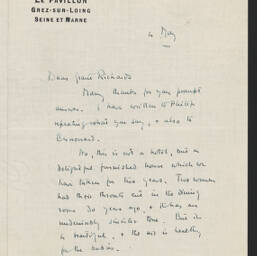 LE PAVILLON
GREZ-SUR-LOING
SEINE ET MARNE
4 May
Dear Grant Richards
Many thanks for your prompt
answer. I have written to Philip
repeating what you say, & also to
No, this is not a hotel, but a
delightful furnished house which we
have taken for two years. Two women
had their throats cut in the dining
room 30 years ago, & it has an
undeniably sinister tone. But it
is beautiful, & the air is healthy
for the babies.